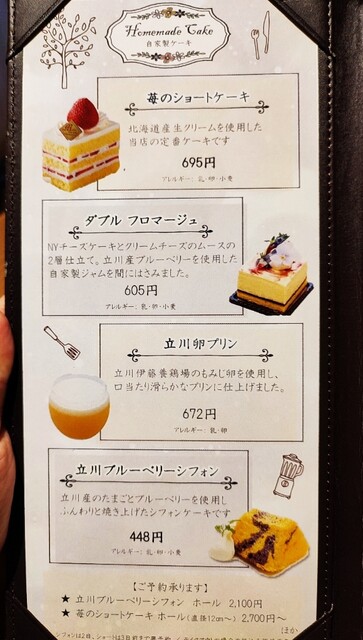 Homemade Cake
自家製ケーキ
苺のショートケーキ
北海道産生クリームを使用した
当店の定番ケーキです
695円
アレルギー: 乳・卵・小麦
ダブル フロマージュ
NYチーズケーキとクリームチーズのムースの
2層仕立て。立川産ブルーベリーを使用した
自家製ジャムを間にはさみました。
605円
アレルギー: 乳・卵・小麦
立川卵プリン
立川伊藤養鶏場のもみじ卵を使用し、
口当たり滑らかなプリンに仕上げました。
672円
アレルギー: 乳・卵
立川ブルーベリーシフォン
立川産のたまごとブルーベリーを使用し
ふんわりと焼き上げたシフォンケーキです
448円
アレルギー: 乳・卵・小麦
【ご予約承ります】
★ 立川ブルーベリーシフォン ホール 2,100円
★ 苺のショートケーキ ホール(直径12cm〜) 2,700円〜
ほか